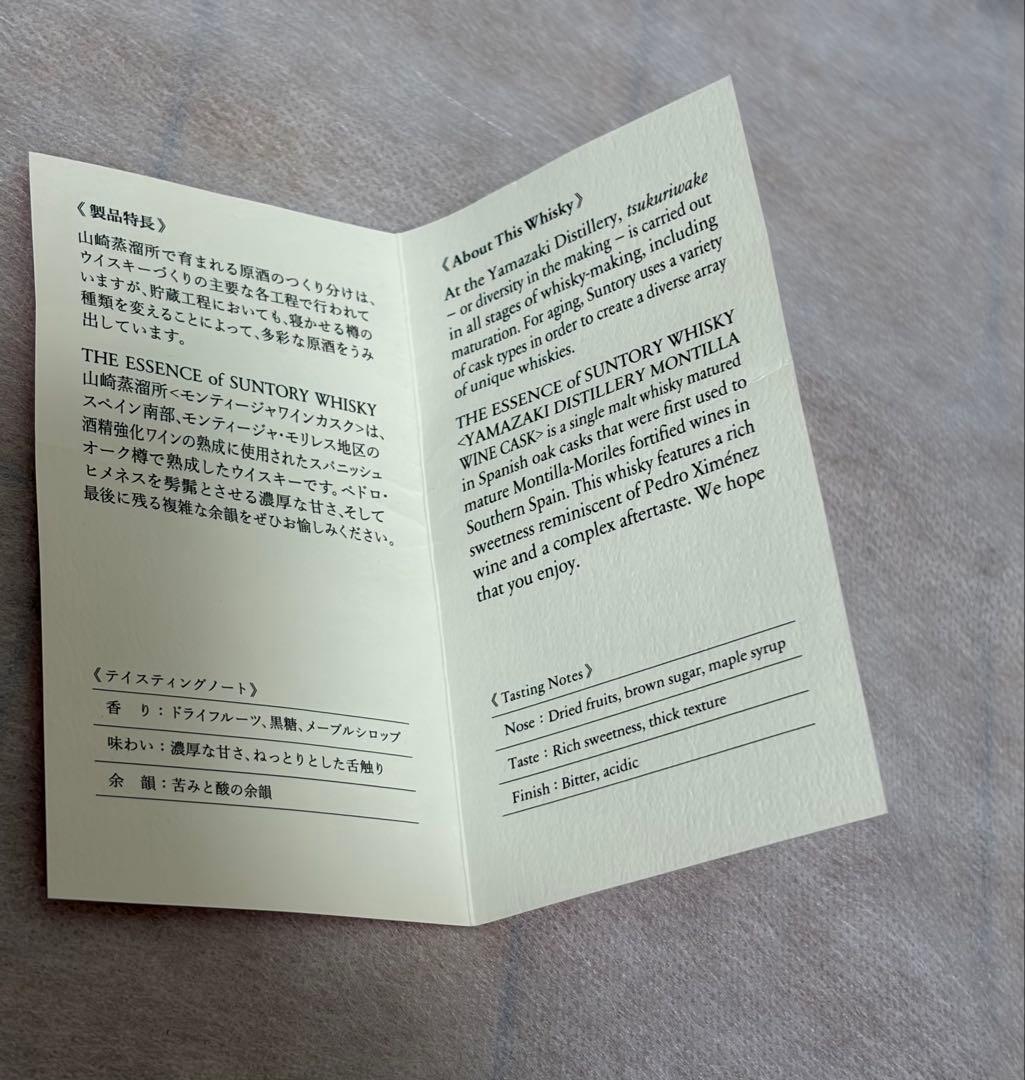 《製品特長》
山崎蒸溜所で育まれる原酒のつくり分けは、
ウイスキーづくりの主要な各工程で行われて
いますが、貯蔵工程においても、寝かせる樽の
種類を変えることによって、多彩な原酒をうみ
出しています。
THE ESSENCE of SUNTORY WHISKY
山崎蒸溜所<モンティージャワインカスク>は、
スペイン南部、モンティージャ・モリレス地区の
酒精強化ワインの熟成に使用されたスパニッシュ
オーク樽で熟成したウイスキーです。ペドロ・
ヒメネスを髣髴とさせる濃厚な甘さ、そして
最後に残る複雑な余韻をぜひお愉しみください。
《テイスティングノート》
香 り：ドライフルーツ、黒糖、メープルシロップ
味わい：濃厚な甘さ、ねっとりとした舌触り
余 韻：苦みと酸の余韻
《About This Whisky》
At the Yamazaki Distillery, tsukuriwake
– or diversity in the making – is carried out
in all stages of whisky-making, including
maturation. For aging, Suntory uses a variety
of cask types in order to create a diverse array
of unique whiskies.
THE ESSENCE of SUNTORY WHISKY
<YAMAZAKI DISTILLERY MONTILLA
WINE CASK> is a single malt whisky matured
in Spanish oak casks that were first used to
mature Montilla-Moriles fortified wines in
Southern Spain. This whisky features a rich
sweetness reminiscent of Pedro Ximénez
wine and a complex aftertaste. We hope
that you enjoy.
《Tasting Notes》
Nose : Dried fruits, brown sugar, maple syrup
Taste : Rich sweetness, thick texture
Finish : Bitter, acidic